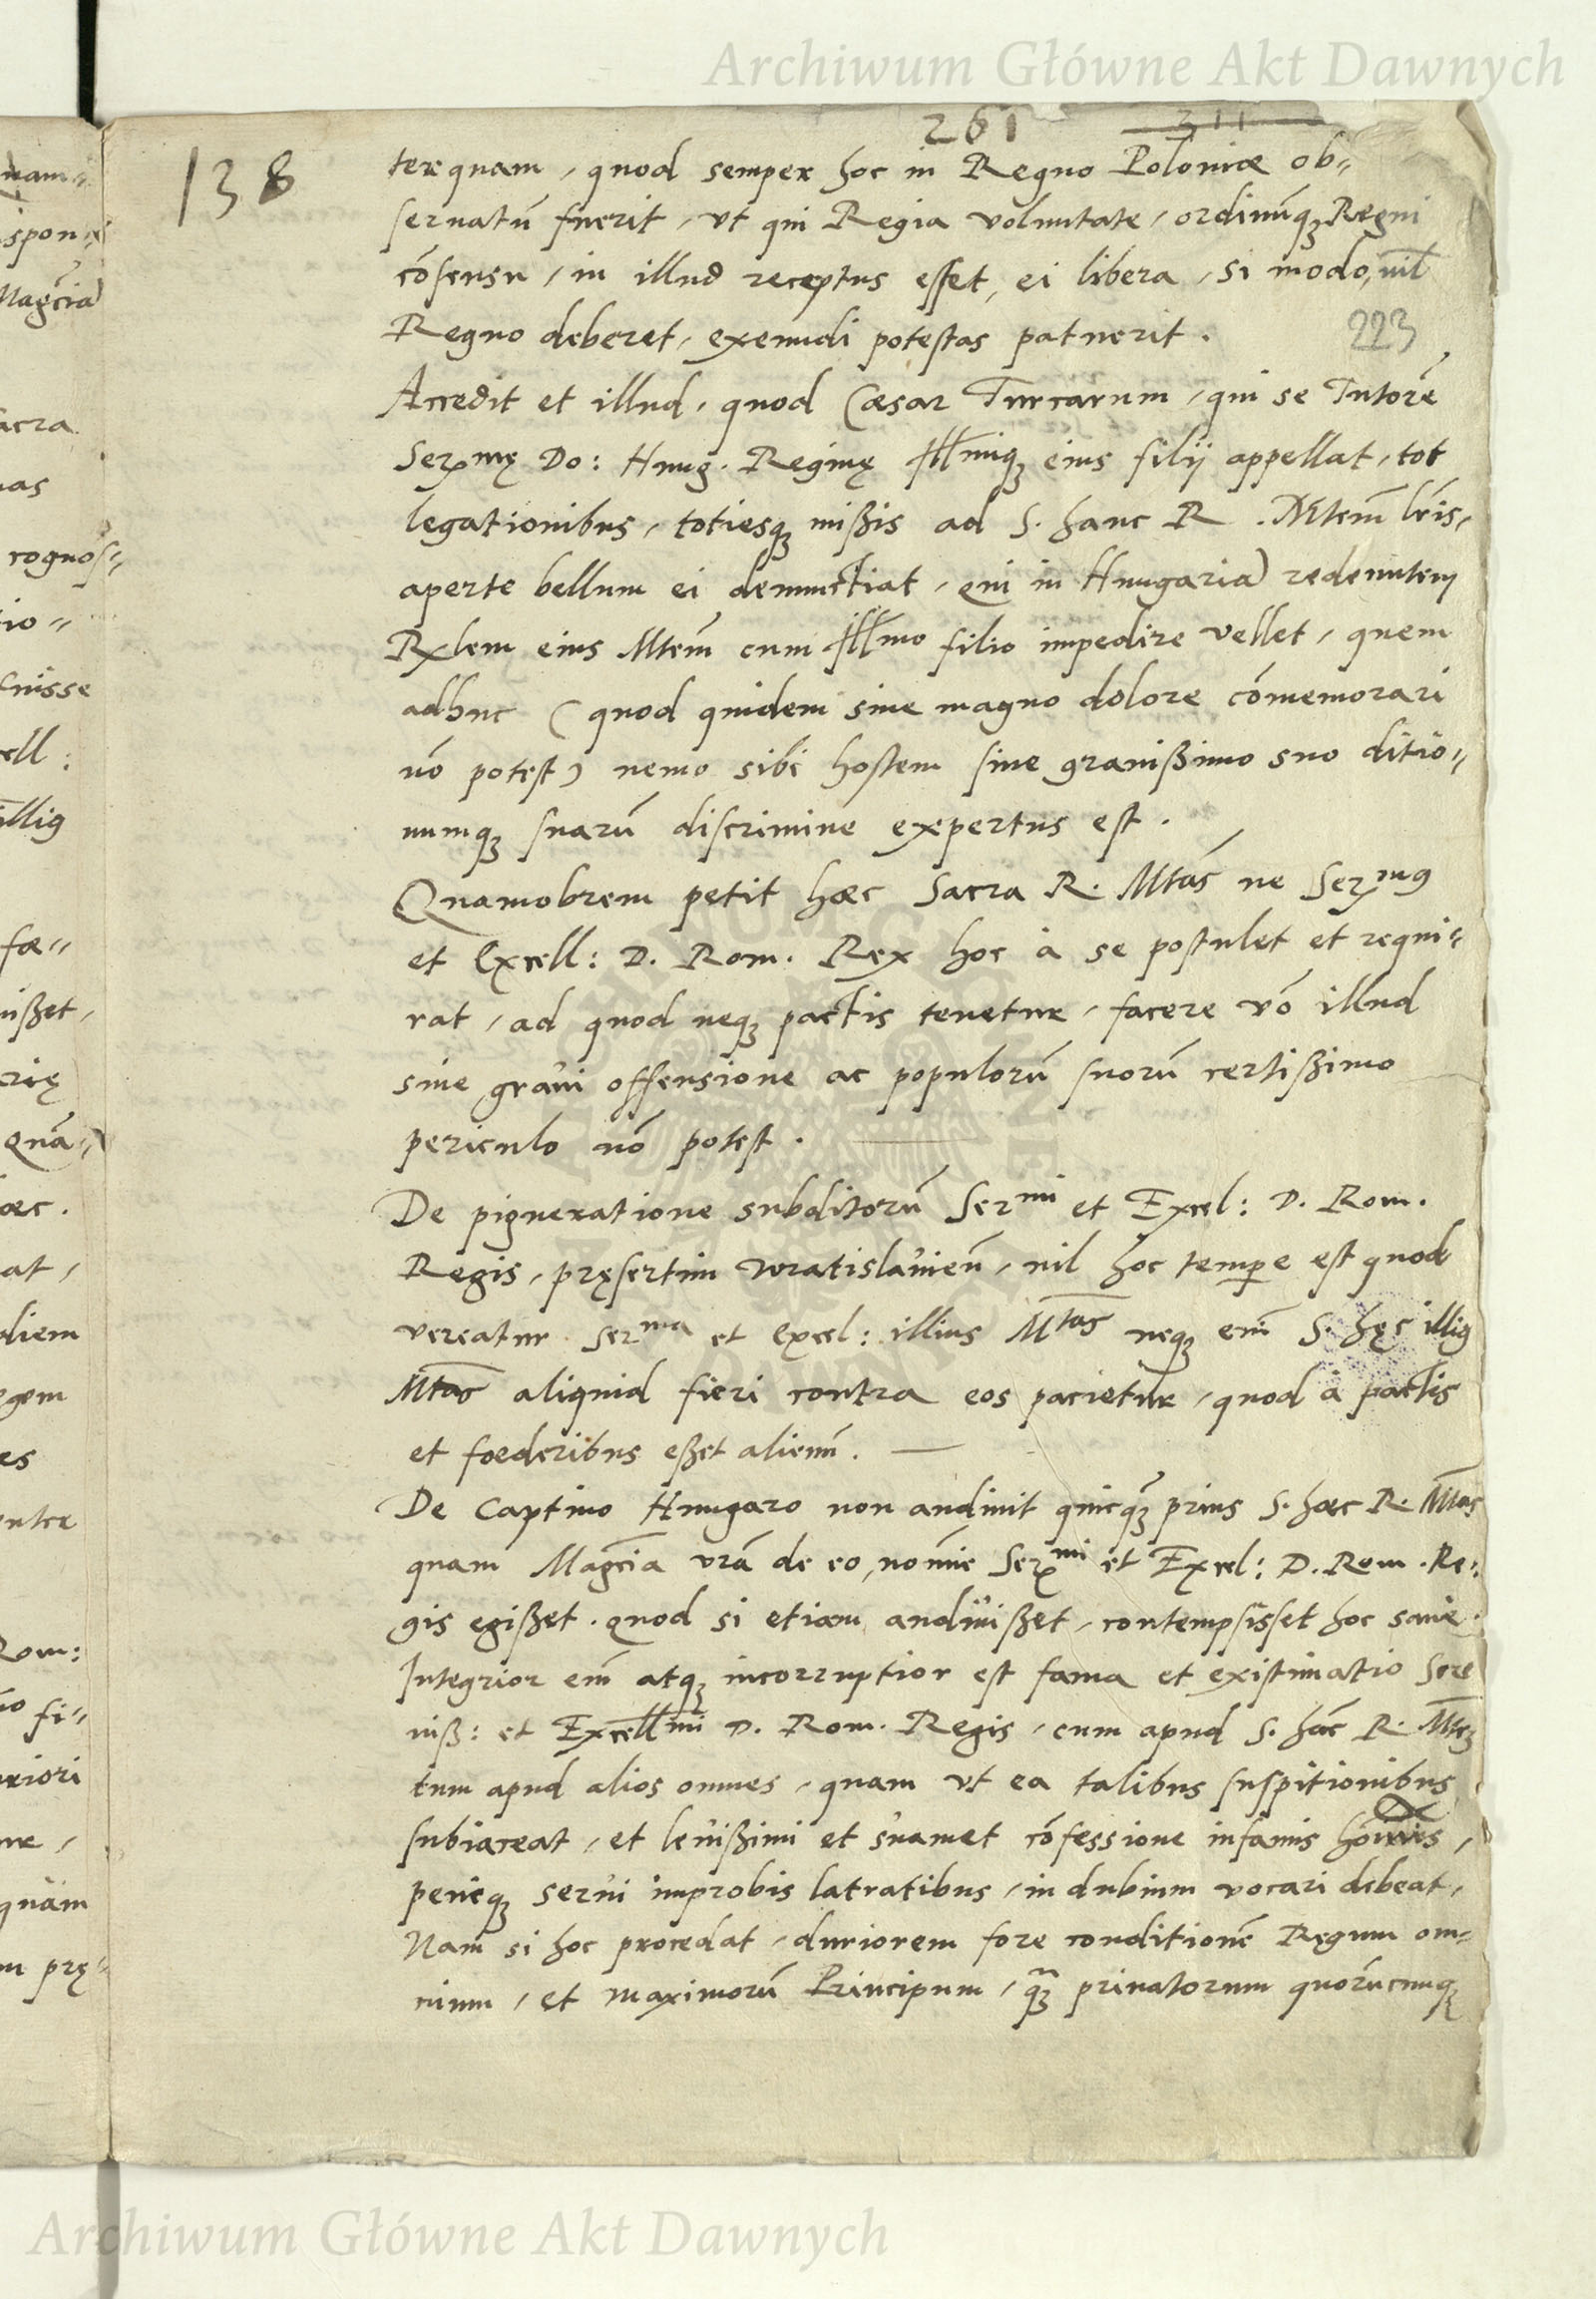 Archiwum Główne Akt Dawnych
261 311
138
terquam, quod semper hoc in Regno Poloniæ ob=
seruatū fuerit, vt qui Regia voluntate, ordinūq3 Regni
cōsensu, in illud receptus esset, ei libera, si modo, nil
Regno deberet, exeundi potestas patuerit.
223
Accedit et illud, quod Cæsar Turcarum, qui se Tutorē
Serxmę Do: Hung. Reginę Illmiq3 eius filij appellat, tot
legationibus, totiesq3 mißis ad S. hanc R. Mtem̄ lr̄is,
aperte bellum ei denunctiat, qui in Hungaria) redeuntem
Rxlem eius Mtem̄ cum Illmo filio impedire vellet, quem
adhuc (quod quidem sine magno dolore cōmemorari
nō potest) nemo sibi hostem sine grauißimo suo ditio=
numq3 suarū discrimine expertus est.
Quamobrem petit hæc Sacra R. Mtās ne Serxmus
et Excell: D. Rom. Rex hoc à se postulet et requi=
rat, ad quod neq3 pactis tenetur, facere vō illud
sine graui offensione ac populorū suorū certißimo
periculo nō potest.
De pigneratione subditorū Sermi et Excel: D. Rom.
Regis, pręsertim Wratislauień, nil hoc tempe est quod
vereatur Serma et Excel: illius Mtas neq3 em̄ S. hęc illiꝰ
Mtas aliquid fieri contra eos pacietur, quod à pactis
et foederibus eßet alienū.
De Captiuo Hungaro non audiuit quicq̄3 prius S. hæc R. Mtas
quam Magcīa vrā de eo, nomīe Serxmi et Excel: D. Rom. Re=
gis egißet. quod si etiam audiuißet, contempsisset hoc sane.
Integrior em̄ atq3 incorruptior est fama et existimatio Sere
niß: et Excellmi D. Rom. Regis, cum apud S. hāc R. Mtē3
tum apud alios omnes, quam vt ea talibus suspitionibus
subiaceat, et leuißimi et suamet cōfessione infamis hoīs,
peneq3 serui improbis latratibus, in dubium vocari debeat,
Nam si hoc procedat, duriorem fore conditionē Regum om=
nium, et maximorū Principum, q̄3 priuatorum quorūcunq3
Archiwum Główne Akt Dawnych